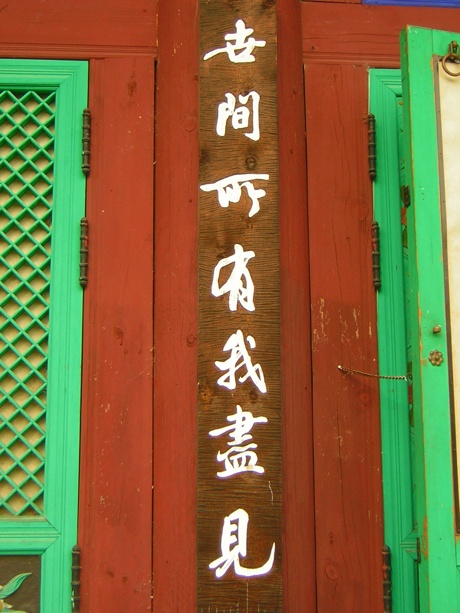 世間所有我盡見